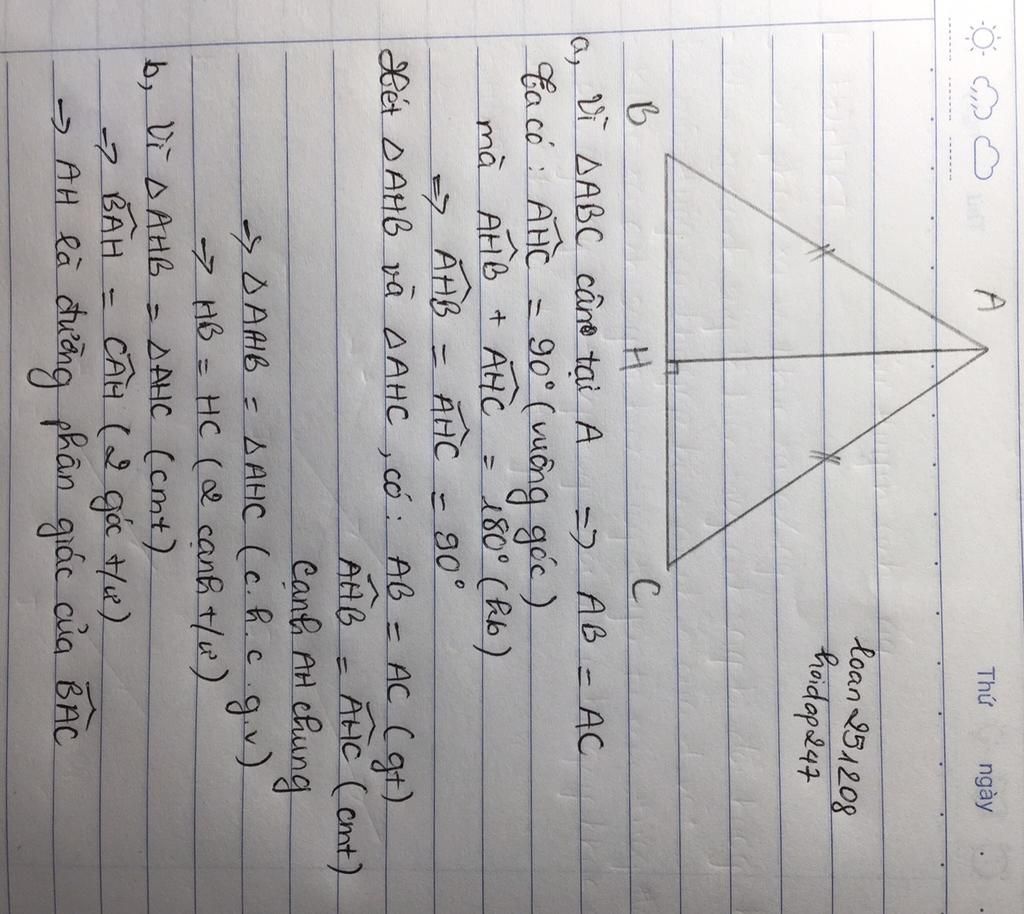 Thứ ngày
loan251208
hoidap247
A
B H C
a, Vì △ABC cân tại A => AB = AC
Ta có: AHC = 90° (vuông góc)
mà AHB + AHC = 180° (kb)
=> AHB = AHC = 90°
Xét △AHB và △AHC, có: AB = AC (gt)
AHB = AHC (cmt)
Cạnh AH chung
-> △AHB = △AHC (c.h.c.g.v)
-> HB = HC (2 cạnh t/ư)
b, Vì △AHB = △AHC (cmt)
-> BAH = CAH (2 góc t/ư)
-> AH là đường phân giác của BAC